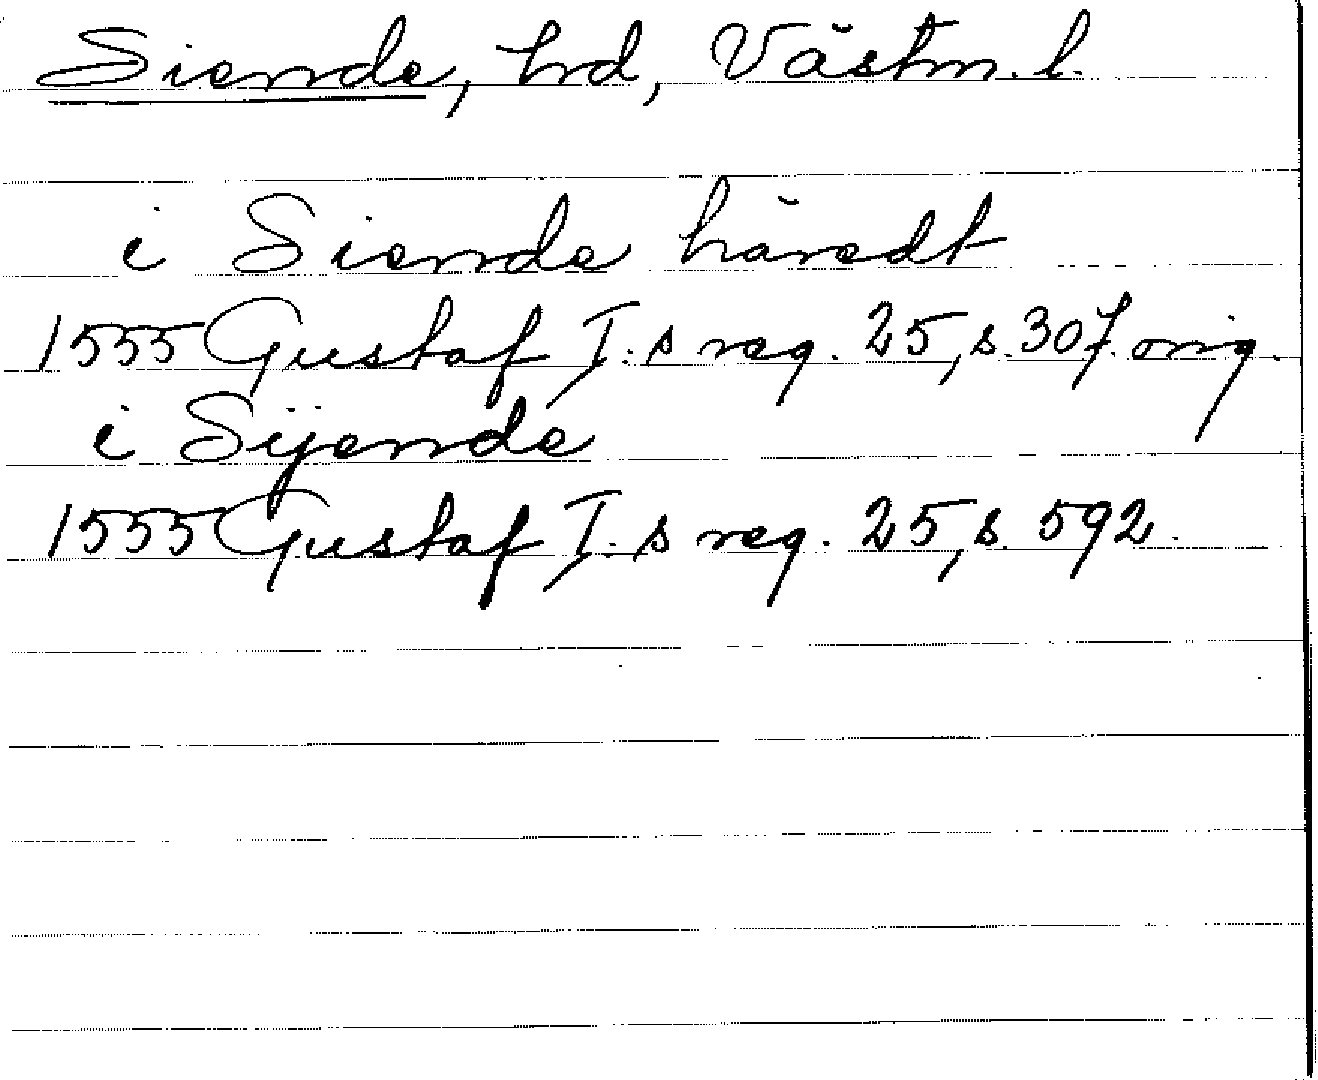 Siende, hrd, Västm. l.
i Siende häredt
1555 Gustaf I:s reg. 25, s. 307. orig.
i Sÿende
1555 Gustaf I:s reg. 25, s. 592.